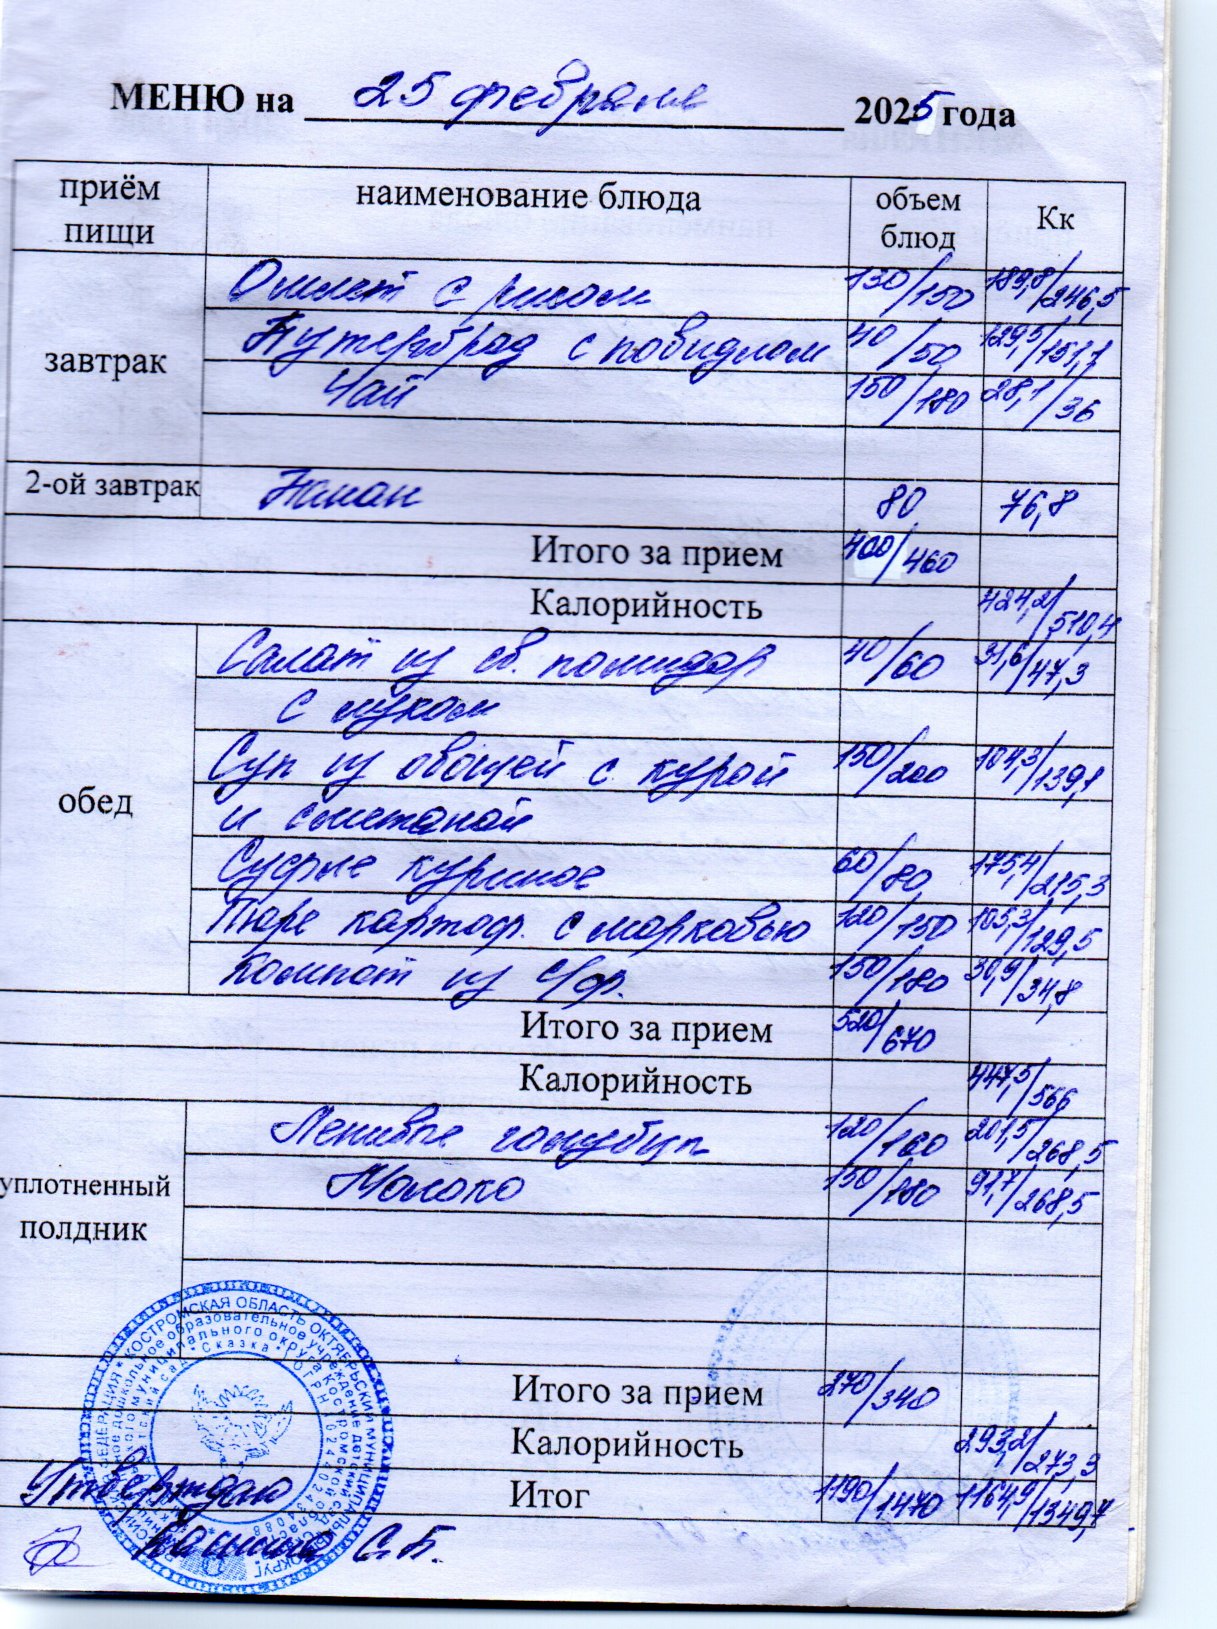 МЕНЮ на 25 февраля 2025 года
приём пищи наименование блюда объем блюд Кк
завтрак
Омлет с рисом 130/150 189,8/246,5
Бутерброд с повидлом 40/50 129,5/151,1
Чай 150/180 28,1/36
2-ой завтрак Банан 80 76,8
Итого за прием 400/460
Калорийность 424,2/510,4
обед
Салат из св. помидор 40/60 31,6/47,3
с луком
Суп из овощей с курой 150/200 104,3/139,1
и сметаной
Суфле куриное 60/80 175,4/215,3
Пюре картоф. с морковью 120/150 105,3/129,5
Компот из с/фр. 150/180 30,9/34,8
Итого за прием 520/670
Калорийность 447,5/566
уплотненный полдник
Ленивые голубцы 120/160 201,5/268,5
Молоко 150/180 91,7/268,5
Итого за прием 270/340
Калорийность 293,2/273,3
Итог 1190/1470 1164,9/1349,7
Утверждаю
С.Б.
КОСТРОМСКАЯ ОБЛАСТЬ ОКТЯБРЬСКИЙ МУНИЦИПАЛЬНЫЙ ОКРУГ
дошкольное образовательное учреждение детский сад
муниципального округа Костромской области
"Сказка"